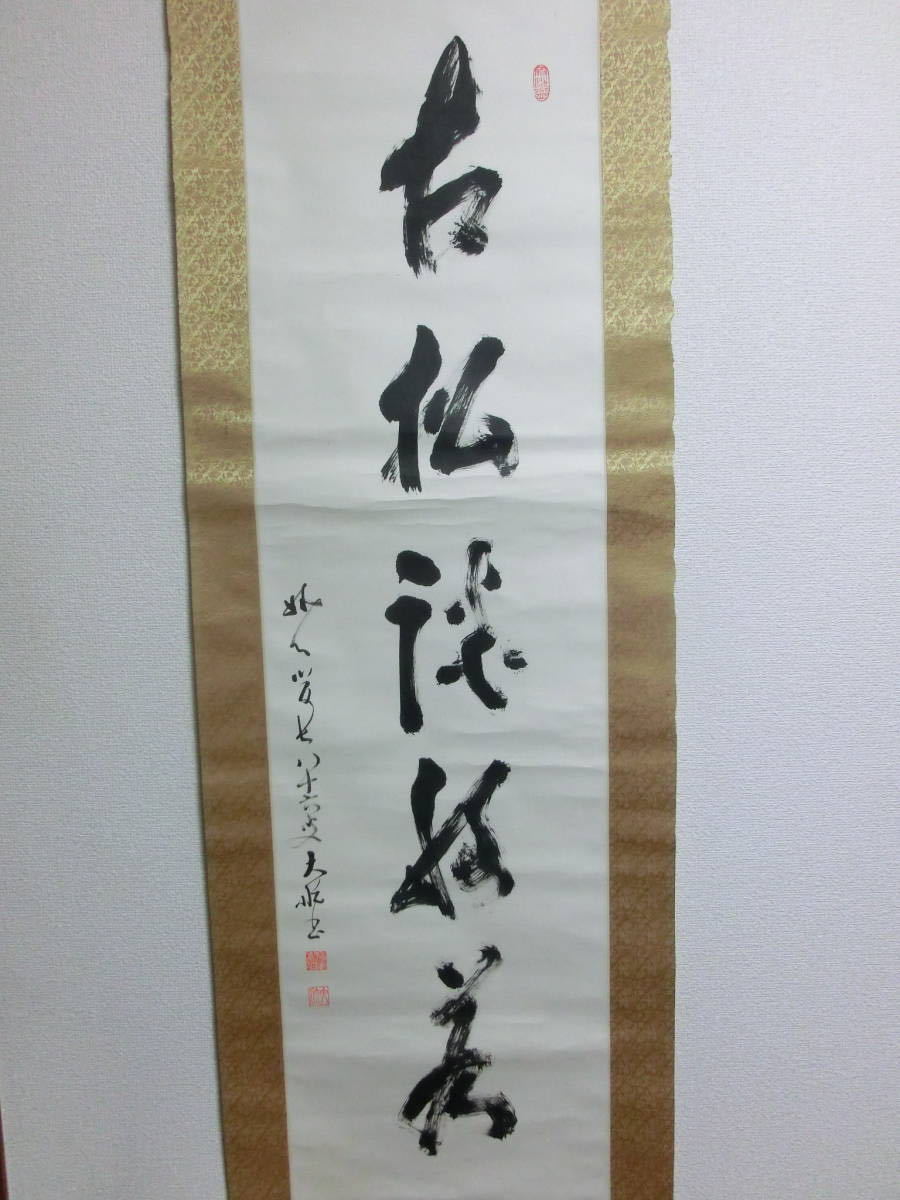 古仏談般若
妙心管長八十六叟大航書